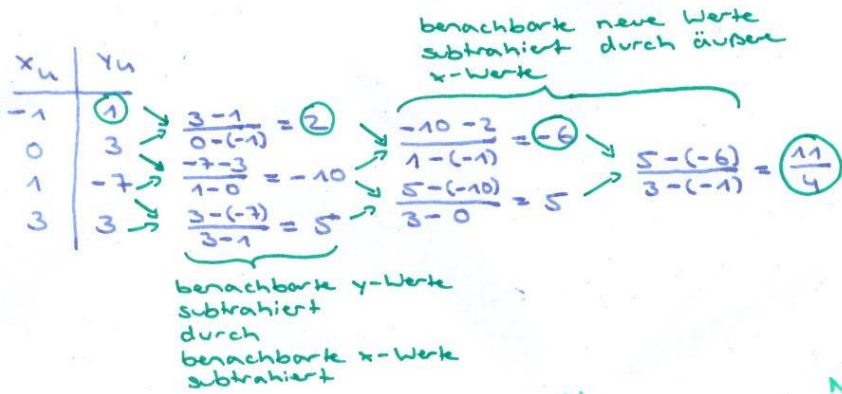 benachbarte neue Werte
subtrahiert durch äußere
x-Werte
xₖ yₖ
-1 1
0 3
1 -7
3 3
(3-1)/(0-(-1)) = 2
(-7-3)/(1-0) = -10
(3-(-7))/(3-1) = 5
(-10-2)/(1-(-1)) = -6
(5-(-10))/(3-0) = 5
(5-(-6))/(3-(-1)) = 11/4
benachbarte y-Werte
subtrahiert
durch
benachbarte x-Werte
subtrahiert